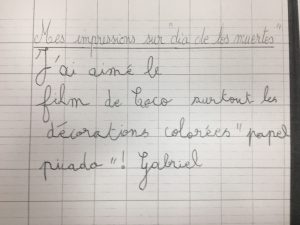 Mes impressions sur "dia de los muertos"
J'ai aimé le
film de Coco surtout les
décorations colorées "papel
picado"! Gabriel